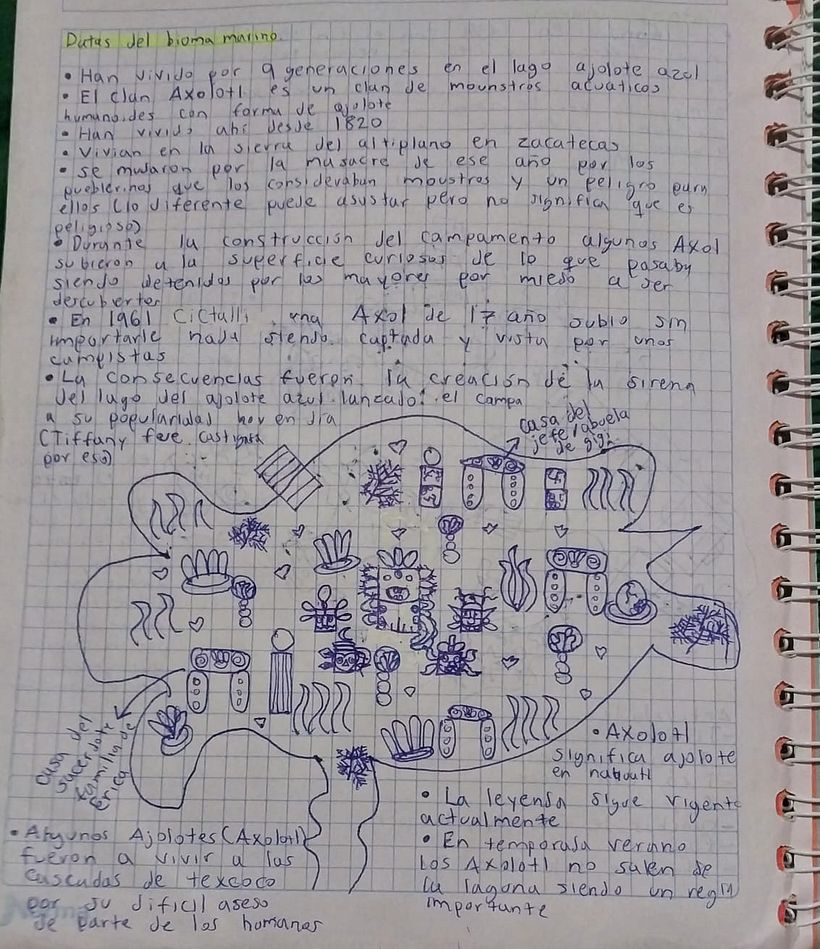 Datas del bioma marino.
• Han vivido por 9 generaciones en el lago ajolote azul
• El clan Axolotl es un clan de mounstros acuaticos
humanoides con forma de ajolote
• Han vivido ahi desde 1820
• Vivian en la sierra del altiplano en zacatecas
• se mudaron por la masacre de ese año por los
pueblerinos que los consideraban moustros y un peligro para
ellos (lo diferente puede asustar pero no significa que es
peligroso)
• Durante la construccion del campamento algunos Axol
subieron a la superficie curiosos de lo que pasaba
siendo detenidos por los mayores por miedo a ser
descubiertos
• En 1961 Cictalli una Axol de 17 año subio sin
importarle nada siendo captada y vista por unos
campistas
• La consecuencias fueron la creacion de la sirena
del lago del ajolote azul lanzado el campa
a su popularidad hoy en dia
(Tiffany fue castigada
por eso)
casa del
jefe/abuela
de gigi
casa del
sacerdote
familia de
Erica
• Axolotl
significa ajolote
en nahuatl
• Algunos Ajolotes (Axolotl)
fueron a vivir a las
cascadas de texcoco
por su dificil aseso
de parte de los humanos
• La leyenda sigue vigente
actualmente
• En temporada verano
los Axolotl no salen de
la laguna siendo un regla
importante